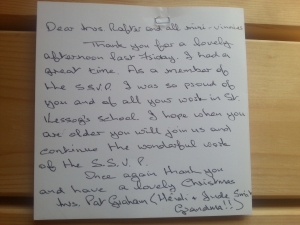 Dear Mrs Rafter and all mini-vinnies
Thank you for a lovely
afternoon last Friday. I had a
great time. As a member of
the S.S.V.P. I was so proud of
you and of all your work in St.
Kessog's School. I hope when you
are older you will join us and
continue the wonderful work
of the S.S.V.P.
Once again thank you
and have a lovely Christmas
Mrs. Pat Graham (Heidi + Jude
Grandma!!)